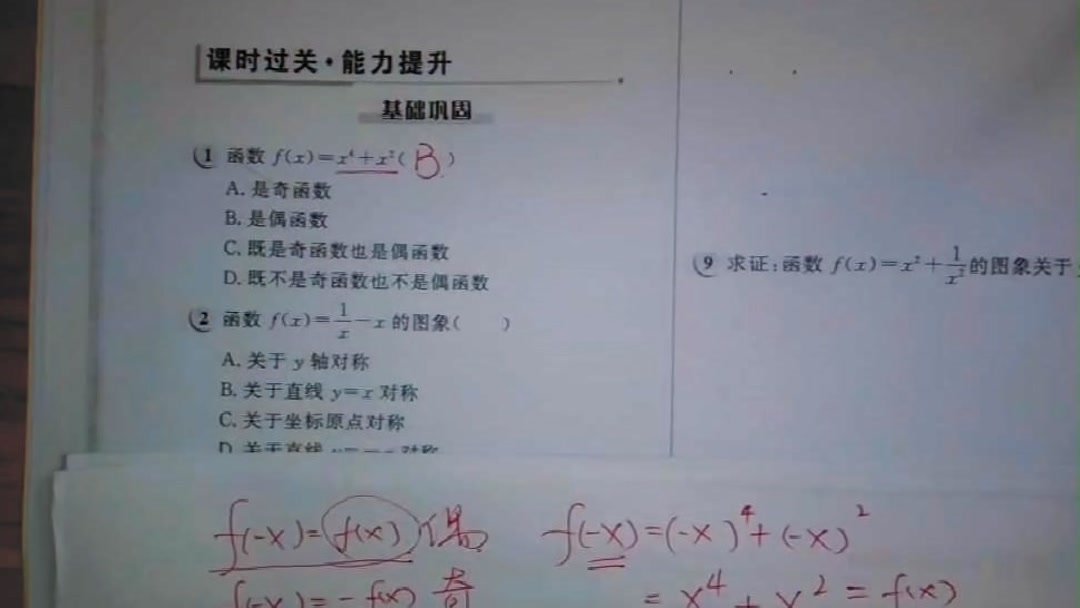 课时过关·能力提升
基础巩固
1 函数 f(x)=x⁴+x²( B )
A. 是奇函数
B. 是偶函数
C. 既是奇函数也是偶函数
D. 既不是奇函数也不是偶函数
2 函数 f(x)=1/x-x 的图象( )
A. 关于 y 轴对称
B. 关于直线 y=x 对称
C. 关于坐标原点对称
D. 关于直线 y=-x 对称
9 求证:函数 f(x)=x²+1/x²的图象关于
f(-x)=f(x) 偶
f(-x)=-f(x) 奇
f(-x)=(-x)⁴+(-x)²
=x⁴+x²=f(x)